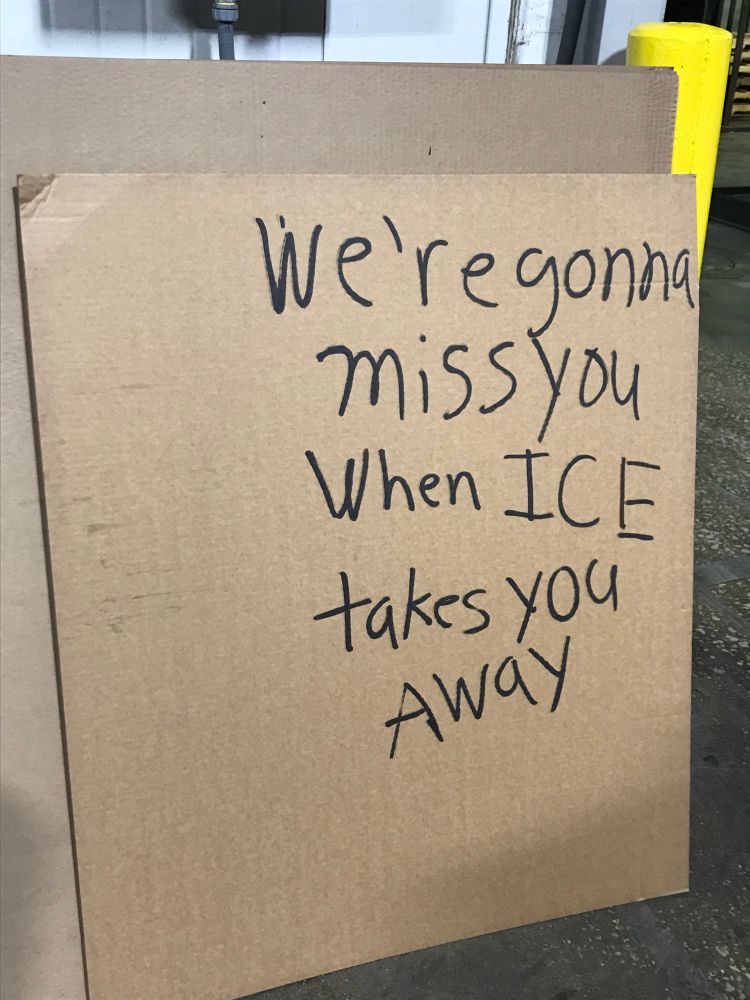 We're gonna
miss you
When ICE
takes you
Away